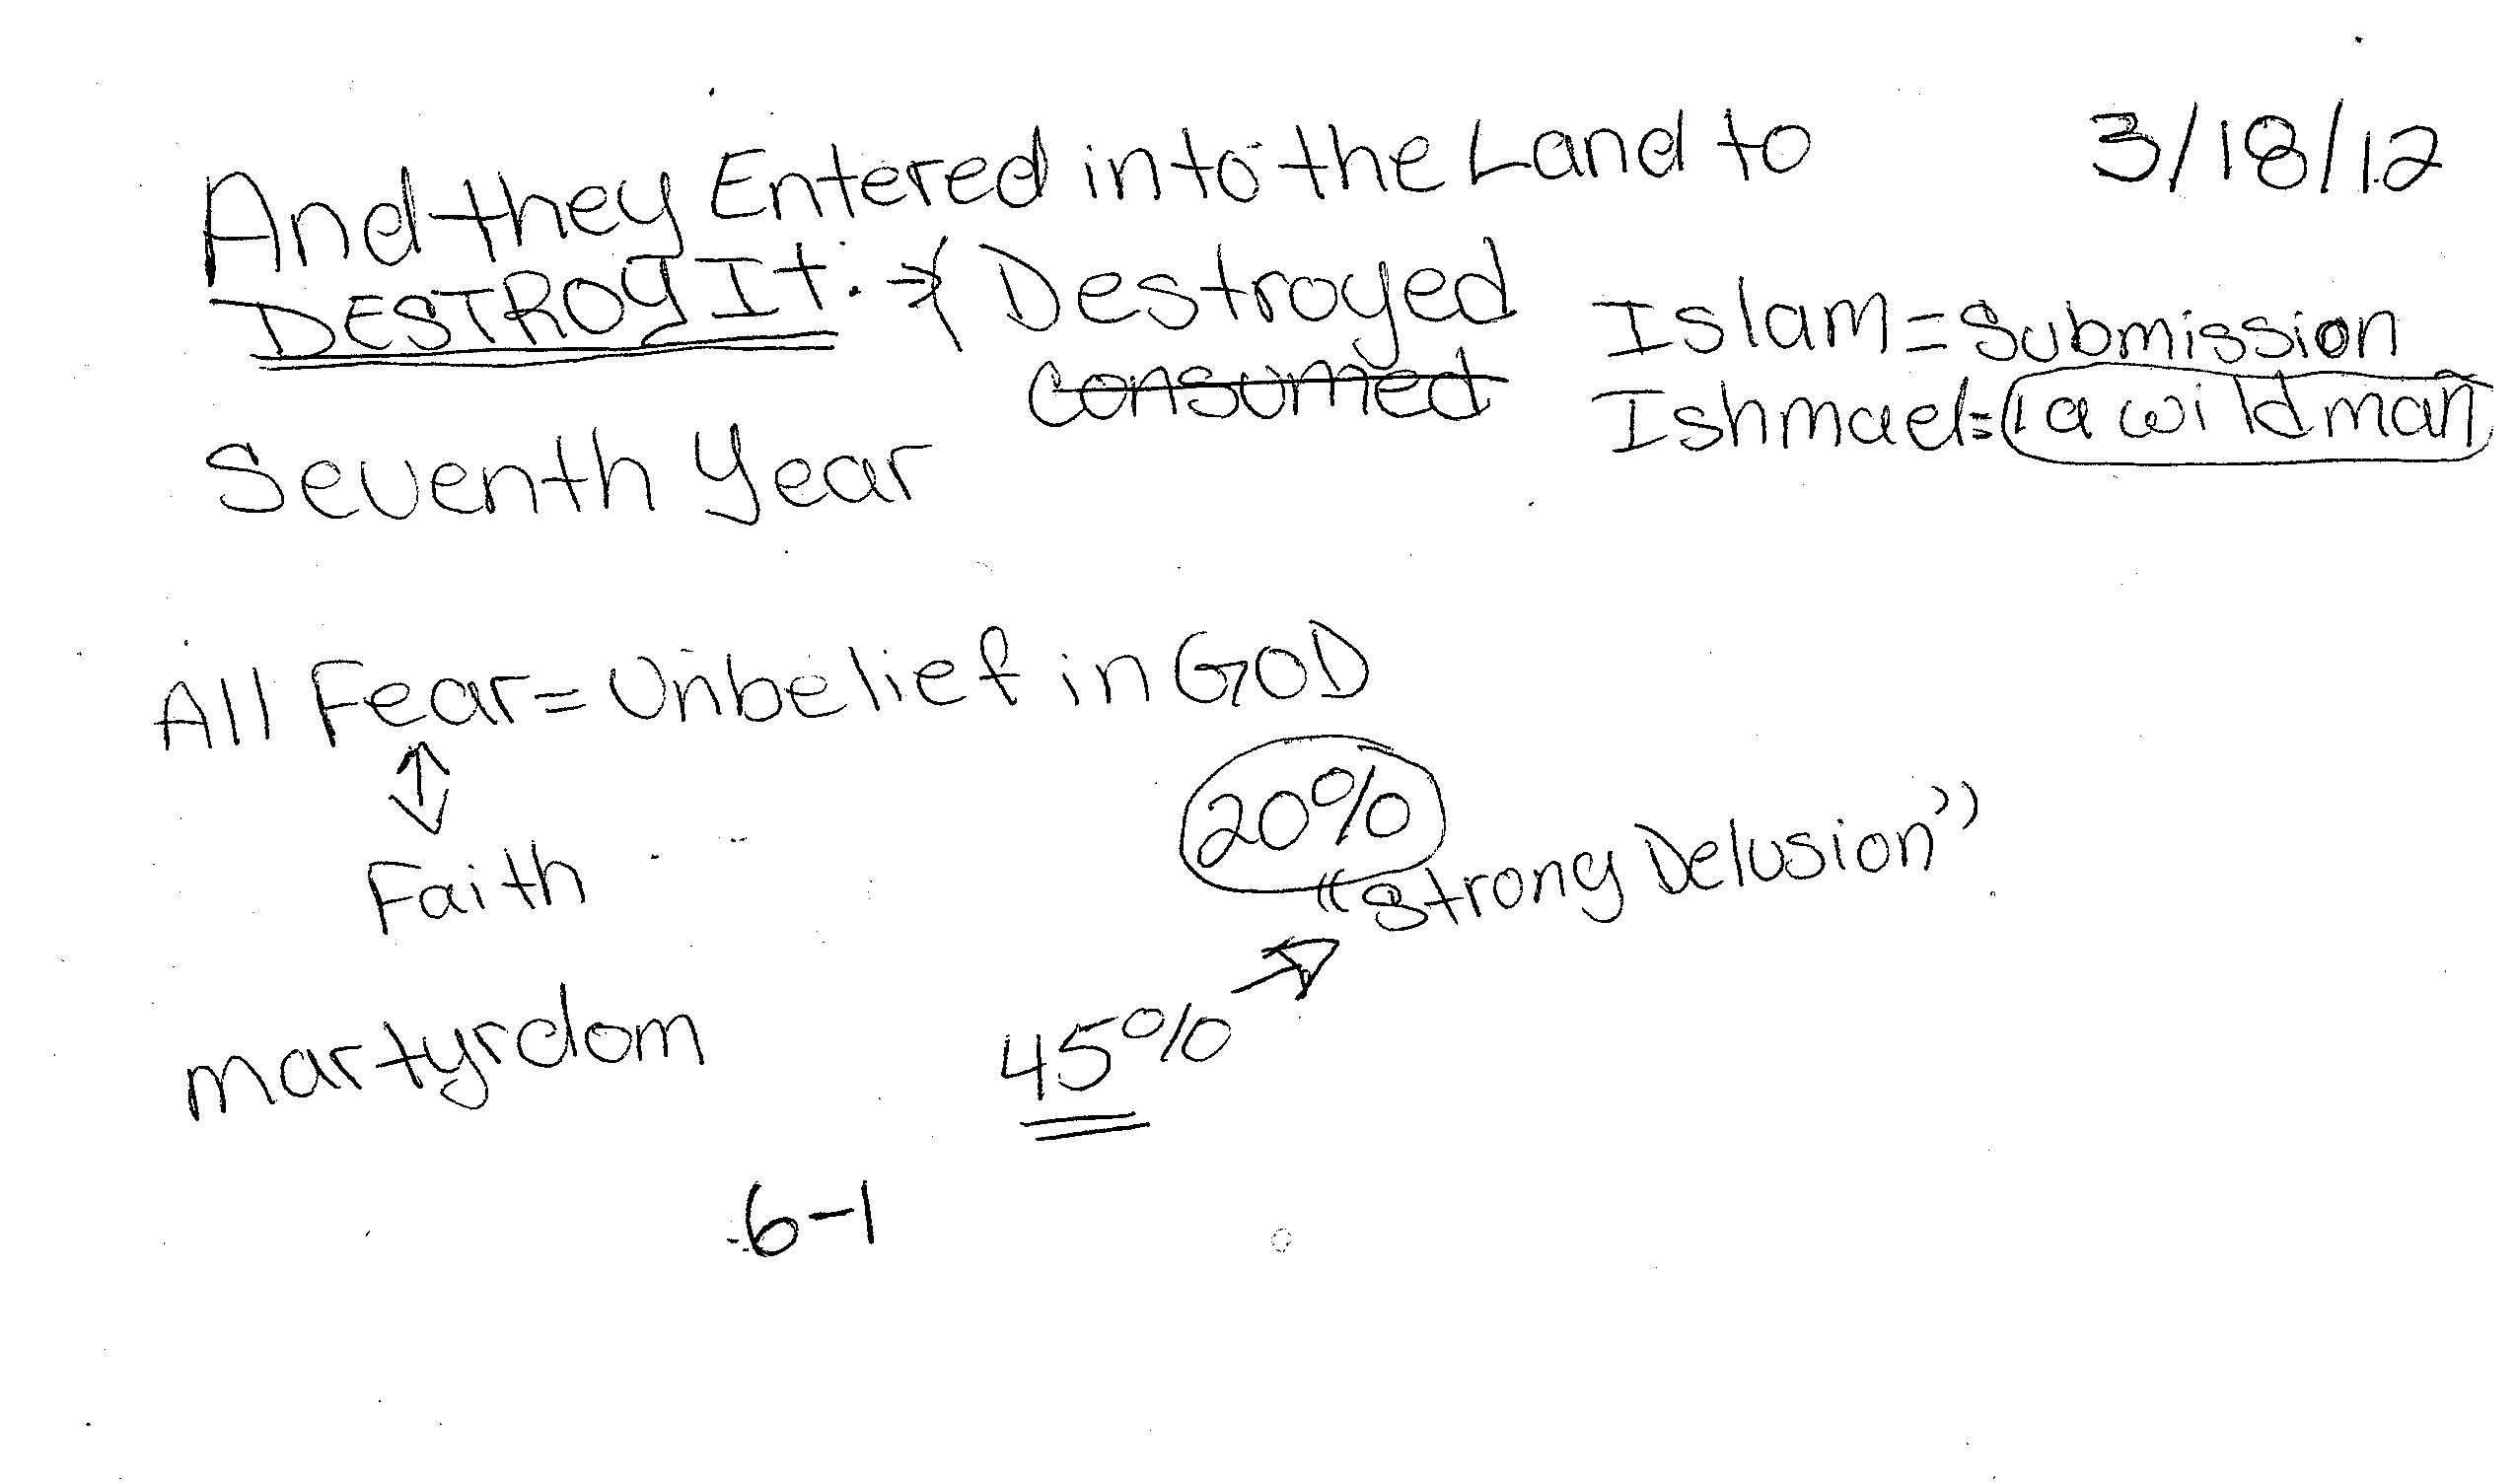 3/18/12
And they Entered into the Land to
DESTROY It. → Destroyed
consumed
Islam = Submission
Ishmael = a wild man
Seventh Year
All Fear = Unbelief in GOD
↕
Faith
20%
"Strong Delusion"
martyrdom
45% →
6-1